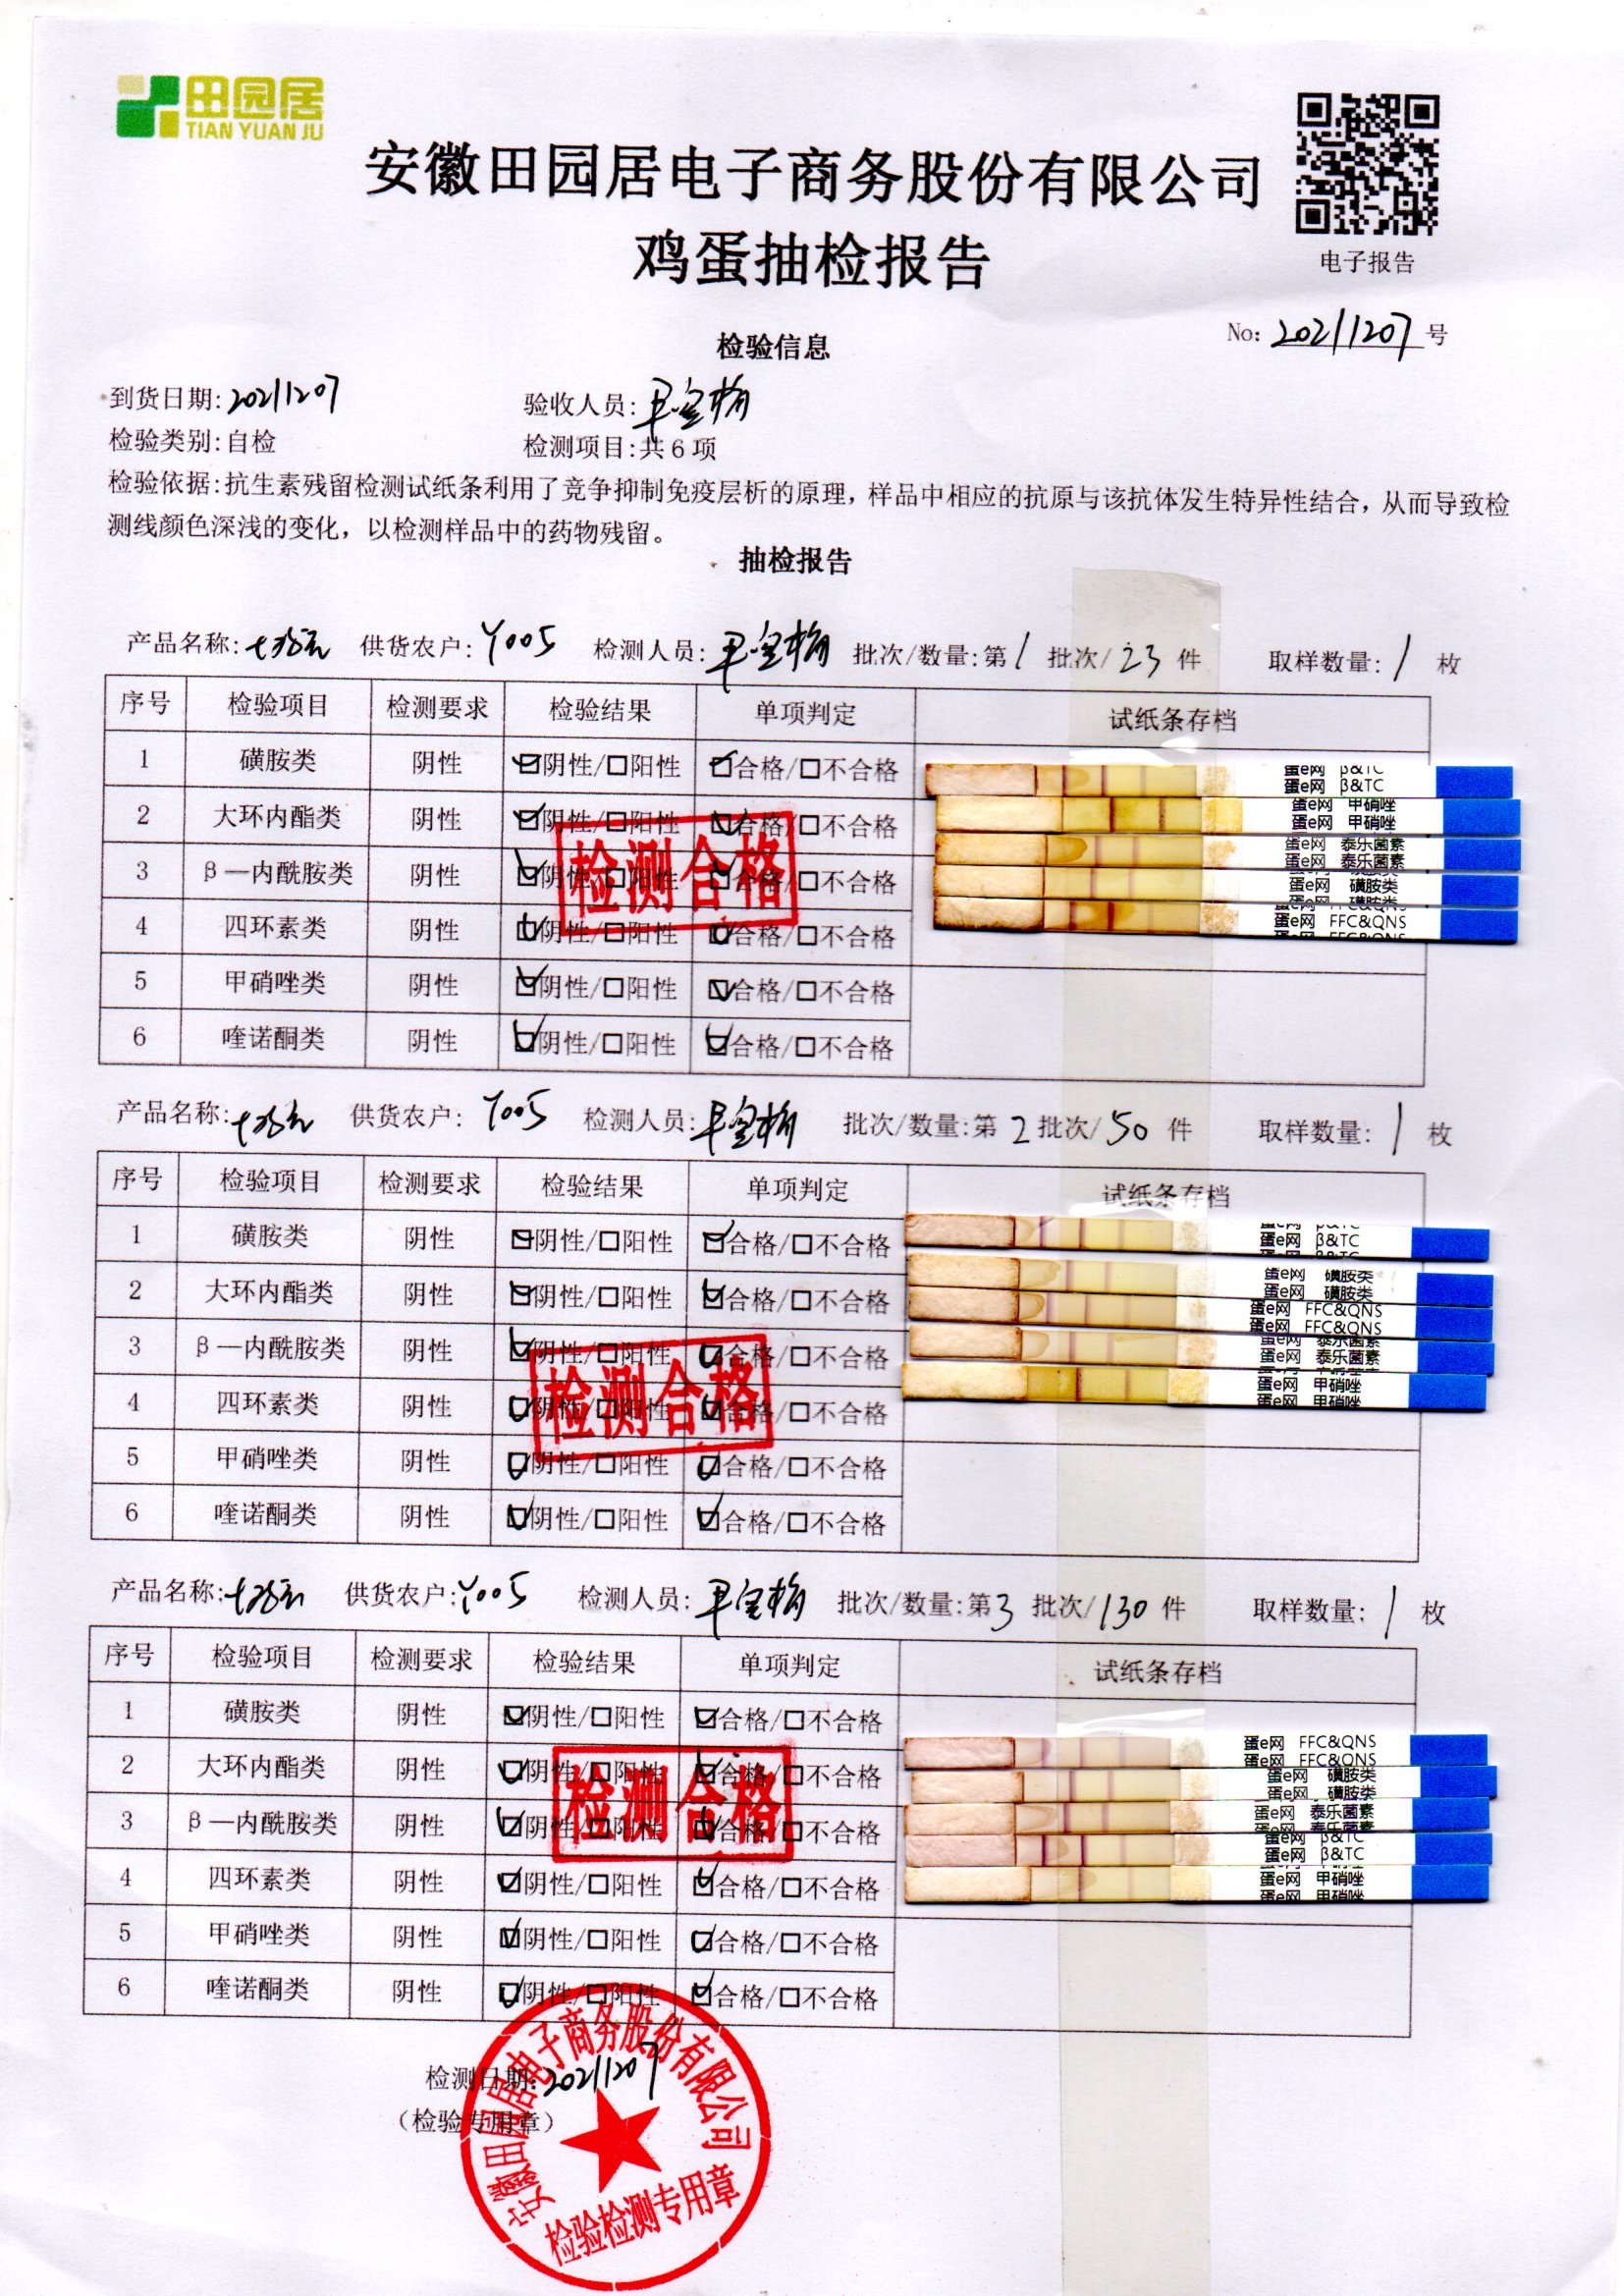 田园居
TIAN YUAN JU
安徽田园居电子商务股份有限公司
鸡蛋抽检报告
电子报告
No: 20211207 号
检验信息
到货日期: 20211207 验收人员:
检验类别:自检 检测项目:共6项
检验依据:抗生素残留检测试纸条利用了竞争抑制免疫层析的原理，样品中相应的抗原与该抗体发生特异性结合，从而导致检
测线颜色深浅的变化，以检测样品中的药物残留。
抽检报告
产品名称: 供货农户: Y005 检测人员: 批次/数量:第1批次/23件 取样数量: 1 枚
序号 检验项目 检测要求 检验结果 单项判定 试纸条存档
1 磺胺类 阴性 ☑阴性/☐阳性 ☑合格/☐不合格
2 大环内酯类 阴性 ☑阴性/☐阳性 ☑合格/☐不合格
3 β—内酰胺类 阴性 ☑阴性/☐阳性 ☑合格/☐不合格
4 四环素类 阴性 ☑阴性/☐阳性 ☑合格/☐不合格
5 甲硝唑类 阴性 ☑阴性/☐阳性 ☑合格/☐不合格
6 喹诺酮类 阴性 ☑阴性/☐阳性 ☑合格/☐不合格
检测合格
蛋e网 β&TC
蛋e网 β&TC
蛋e网 甲硝唑
蛋e网 甲硝唑
蛋e网 泰乐菌素
蛋e网 泰乐菌素
蛋e网 磺胺类
蛋e网 磺胺类
蛋e网 FFC&QNS
蛋e网 FFC&QNS
产品名称: 供货农户: Y005 检测人员: 批次/数量:第2批次/50件 取样数量: 1 枚
序号 检验项目 检测要求 检验结果 单项判定 试纸条存档
1 磺胺类 阴性 ☑阴性/☐阳性 ☑合格/☐不合格
2 大环内酯类 阴性 ☑阴性/☐阳性 ☑合格/☐不合格
3 β—内酰胺类 阴性 ☑阴性/☐阳性 ☑合格/☐不合格
4 四环素类 阴性 ☑阴性/☐阳性 ☑合格/☐不合格
5 甲硝唑类 阴性 ☑阴性/☐阳性 ☑合格/☐不合格
6 喹诺酮类 阴性 ☑阴性/☐阳性 ☑合格/☐不合格
检测合格
蛋e网 β&TC
蛋e网 β&TC
蛋e网 磺胺类
蛋e网 磺胺类
蛋e网 FFC&QNS
蛋e网 FFC&QNS
蛋e网 泰乐菌素
蛋e网 泰乐菌素
蛋e网 甲硝唑
蛋e网 甲硝唑
产品名称: 供货农户: Y005 检测人员: 批次/数量:第3批次/130件 取样数量: 1 枚
序号 检验项目 检测要求 检验结果 单项判定 试纸条存档
1 磺胺类 阴性 ☑阴性/☐阳性 ☑合格/☐不合格
2 大环内酯类 阴性 ☑阴性/☐阳性 ☑合格/☐不合格
3 β—内酰胺类 阴性 ☑阴性/☐阳性 ☑合格/☐不合格
4 四环素类 阴性 ☑阴性/☐阳性 ☑合格/☐不合格
5 甲硝唑类 阴性 ☑阴性/☐阳性 ☑合格/☐不合格
6 喹诺酮类 阴性 ☑阴性/☐阳性 ☑合格/☐不合格
检测合格
蛋e网 FFC&QNS
蛋e网 FFC&QNS
蛋e网 磺胺类
蛋e网 磺胺类
蛋e网 泰乐菌素
蛋e网 泰乐菌素
蛋e网 β&TC
蛋e网 β&TC
蛋e网 甲硝唑
蛋e网 甲硝唑
检测日期: 20211207
（检验专用章）
安徽田园居电子商务股份有限公司
检验检测专用章